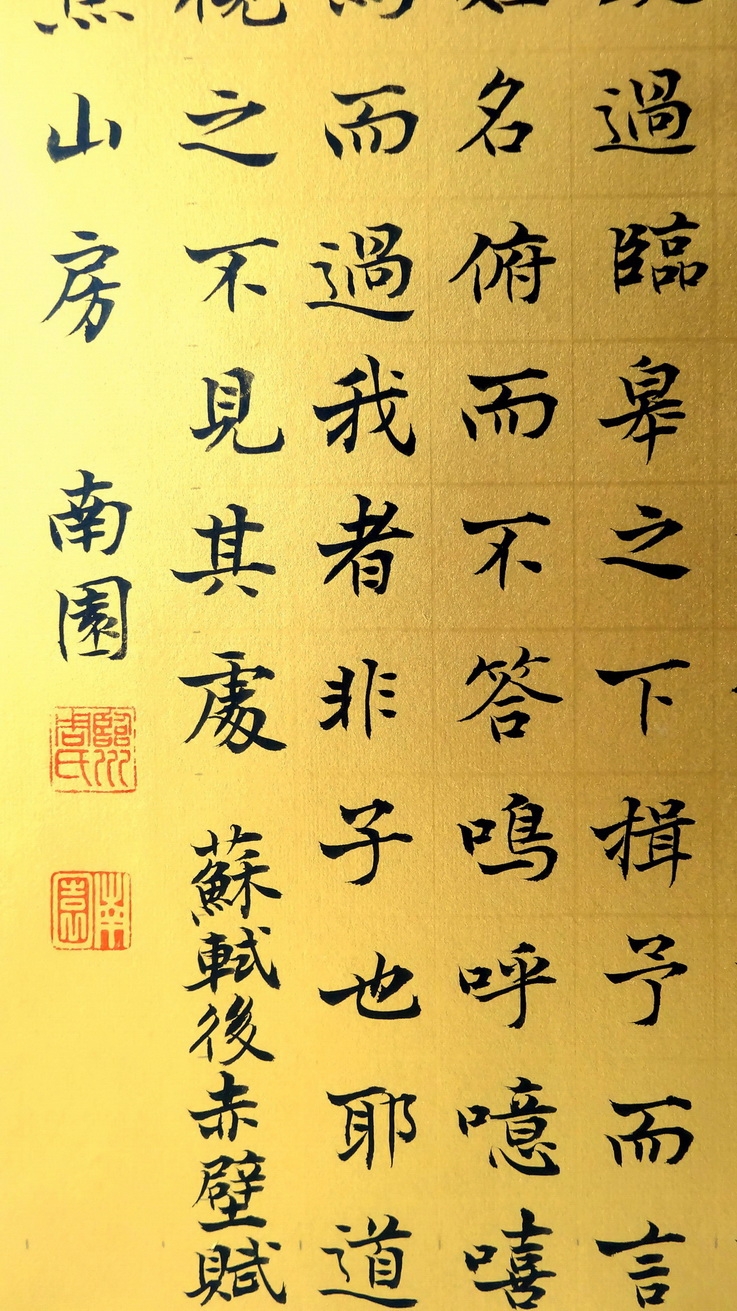 過臨皋之下揖予而言
名俯而不答嗚呼噫嘻
而過我者非子也耶道
之不見其處 蘇軾後赤壁賦
山房 南園
南園